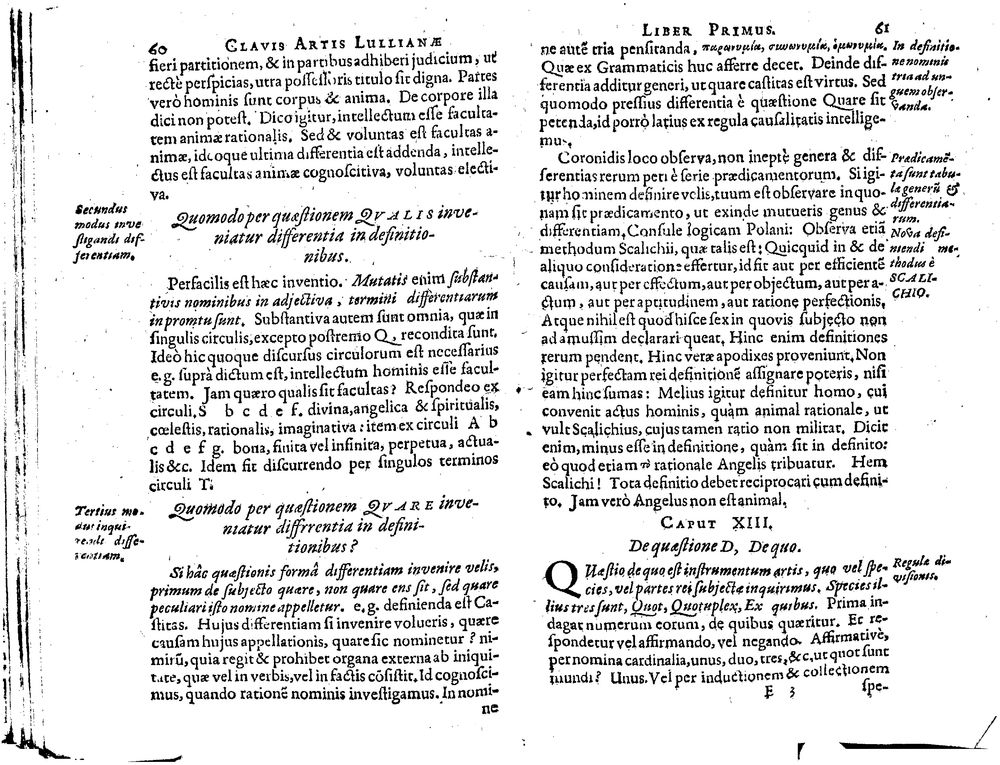 60 CLAVIS ARTIS LULLIANÆ
fieri partitionem, & in partibus adhiberi judicium, ut
rectè perspicias, utra possessoris titulo sit digna. Partes
verò hominis sunt corpus & anima. De corpore illa
dici non potest. Dico igitur, intellectum esse faculta-
tem animæ rationalis. Sed & voluntas est facultas a-
nimæ, ideoque ultima differentia est addenda, intelle-
ctus est facultas animæ cognoscitiva, voluntas electi-
va.
Secundus
modus inve
stigandi dif-
ferentiam.
Quomodo per quæstionem QVALIS inve-
niatur differentia in definitio-
nibus.
Perfacilis est hæc inventio. Mutatis enim substan-
tivis nominibus in adjectiva, termini differentiarum
in promtu sunt. Substantiva autem sunt omnia, quæ in
singulis circulis, excepto postremo Q, recondita sunt.
Ideò hic quoque discursus circulorum est necessarius
e.g. suprà dictum est, intellectum hominis esse facul-
tatem. Jam quæro qualis sit facultas? Respondeo ex
circuli, S b c d e f. divina, angelica & spiritualis,
cœlestis, rationalis, imaginativa: item ex circuli A b
c d e f g. bona, finita vel infinita, perpetua, actua-
lis &c. Idem fit discurrendo per singulos terminos
circuli T.
Tertius mo-
dus inqui-
rendi diffe-
rentiam.
Quomodo per quæstionem QVARE inve-
niatur diffrrentia in defini-
tionibus?
Si hâc quæstionis formâ differentiam invenire velis,
primum de subjecto quare, non quare ens sit, sed quare
peculiari isto nomine appelletur. e.g. definienda est Ca-
stitas. Hujus differentiam si invenire volueris, quære
causam hujus appellationis, quare sic nominetur? ni-
mirũ, quia regit & prohibet organa externa ab iniqui-
tate, quæ vel in verbis, vel in factis cõsistit. Id cognosci-
mus, quando rationẽ nominis investigamus. In nomi-
ne
LIBER PRIMUS. 61
ne autẽ tria pensitanda, παρωνυμία, συνωνυμία, ὁμωνυμία.
Quæ ex Grammaticis huc afferre decet. Deinde dif-
ferentia additur generi, ut quare castitas est virtus. Sed
quomodo pressius differentia è quæstione Quare sit
petenda, id porrò latius ex regula causalitatis intellige-
mus.
In definitio-
ne nominis
tria ad un-
guem obser-
vanda.
Coronidis loco observa, non ineptè genera & dif-
ferentias rerum peti è serie prædicamentorum. Si igi-
tur hominem definire velis, tuum est observare in quo-
nam sit prædicamento, ut exinde mutueris genus &
differentiam. Consule logicam Polani: Observa etiã
methodum Scalichii, quæ talis est: Quicquid in & de
aliquo consideratione effertur, id fit aut per efficientẽ
causam, aut per effectum, aut per objectum, aut per a-
ctum, aut per aptitudinem, aut ratione perfectionis,
Atque nihil est quod hisce sex in quovis subjecto non
ad amussim declarari queat. Hinc enim definitiones
rerum pendent. Hinc veræ apodixes proveniunt. Non
igitur perfectam rei definitionẽ assignare poteris, nisi
eam hinc sumas: Melius igitur definitur homo, cui
convenit actus hominis, quàm animal rationale, ut
vult Scalichius, cujus tamen ratio non militat. Dicit
enim, minus esse in definitione, quàm sit in definito:
eò quod etiam τὸ rationale Angelis tribuatur. Hem
Scalichi! Tota definitio debet reciprocari cum defini-
to. Jam verò Angelus non est animal.
Prædicamẽ-
ta sunt tabu-
la generũ &
differentia-
rum.
Nova defi-
niendi me-
thodus è
SCALI-
CHIO.
CAPUT XIII.
De quæstione D, De quo.
QUæstio de quo est instrumentum artis, quo vel spe-
cies, vel partes rei subjectæ inquirimus. Species il-
lius tres sunt, Quot, Quotuplex, Ex quibus. Prima in-
dagat numerum eorum, de quibus quæritur. Et re-
spondetur vel affirmando, vel negando. Affirmativè,
per nomina cardinalia, unus, duo, tres, &c. ut quot sunt
mundi? Unus. Vel per inductionem & collectionem
Regulæ di-
visionis.
E 3 spe-